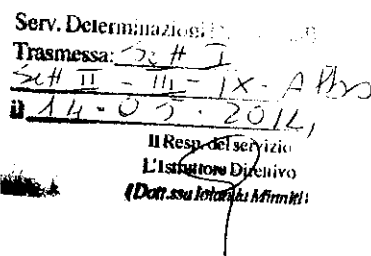 Serv. Determinazioni
Trasmessa: Sett I
Sett II - III - IX - Albo
il 14-05-2014
Il Resp. del servizio
L'Istruttore Direttivo
(Dott.ssa Iolanda Minniti)